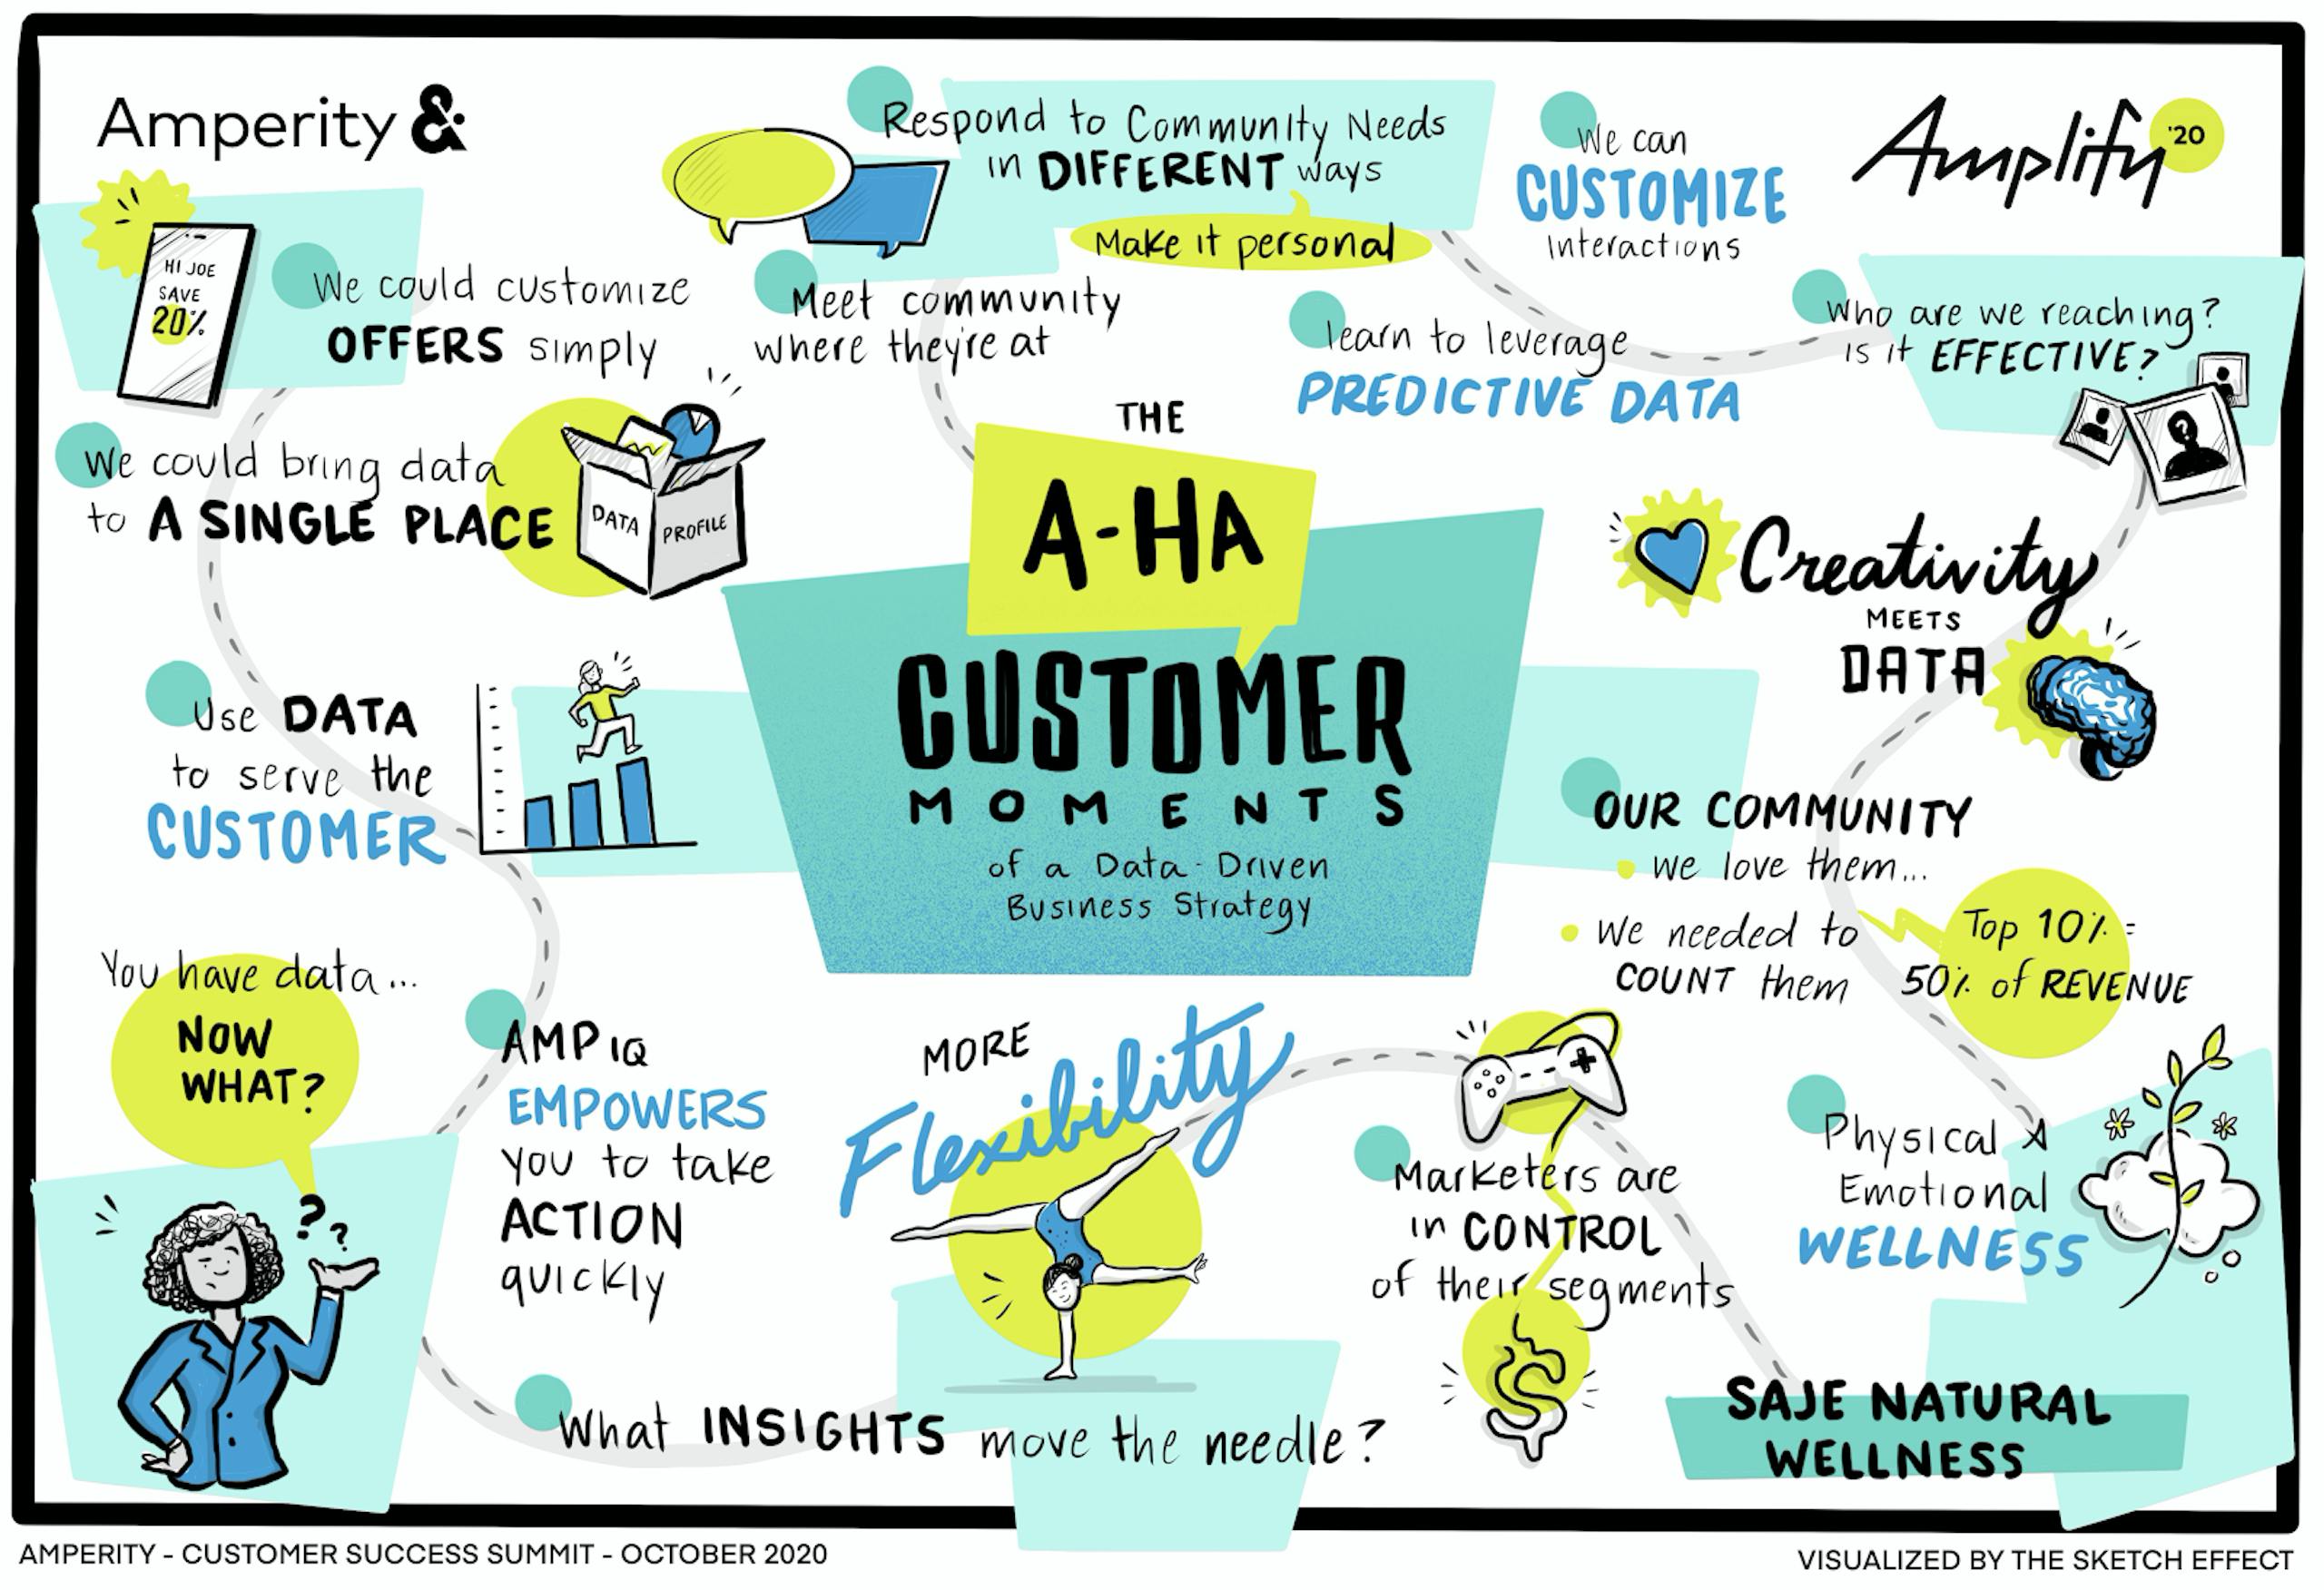 Amperity &
HI JOE
SAVE
20%
We could customize
OFFERS simply
We could bring data
to A SINGLE PLACE
DATA
PROFILE
Use DATA
to serve the
CUSTOMER
You have data...
NOW
WHAT?
? ?
AMP IQ
EMPOWERS
you to take
ACTION
quickly
What INSIGHTS move the needle?
Respond to Community Needs
in DIFFERENT ways
Make it personal
Meet community
where they're at
THE
A-HA
CUSTOMER
MOMENTS
of a Data-Driven
Business Strategy
MORE
Flexibility
We can
CUSTOMIZE
Interactions
Amplify '20
learn to leverage
PREDICTIVE DATA
Who are we reaching?
Is it EFFECTIVE?
?
Creativity
MEETS
DATA
OUR COMMUNITY
• We love them...
• We needed to
COUNT them
Top 10% =
50% of REVENUE
Marketers are
in CONTROL
of their segments
$
Physical &
Emotional
WELLNESS
SAJE NATURAL
WELLNESS
AMPERITY - CUSTOMER SUCCESS SUMMIT - OCTOBER 2020
VISUALIZED BY THE SKETCH EFFECT